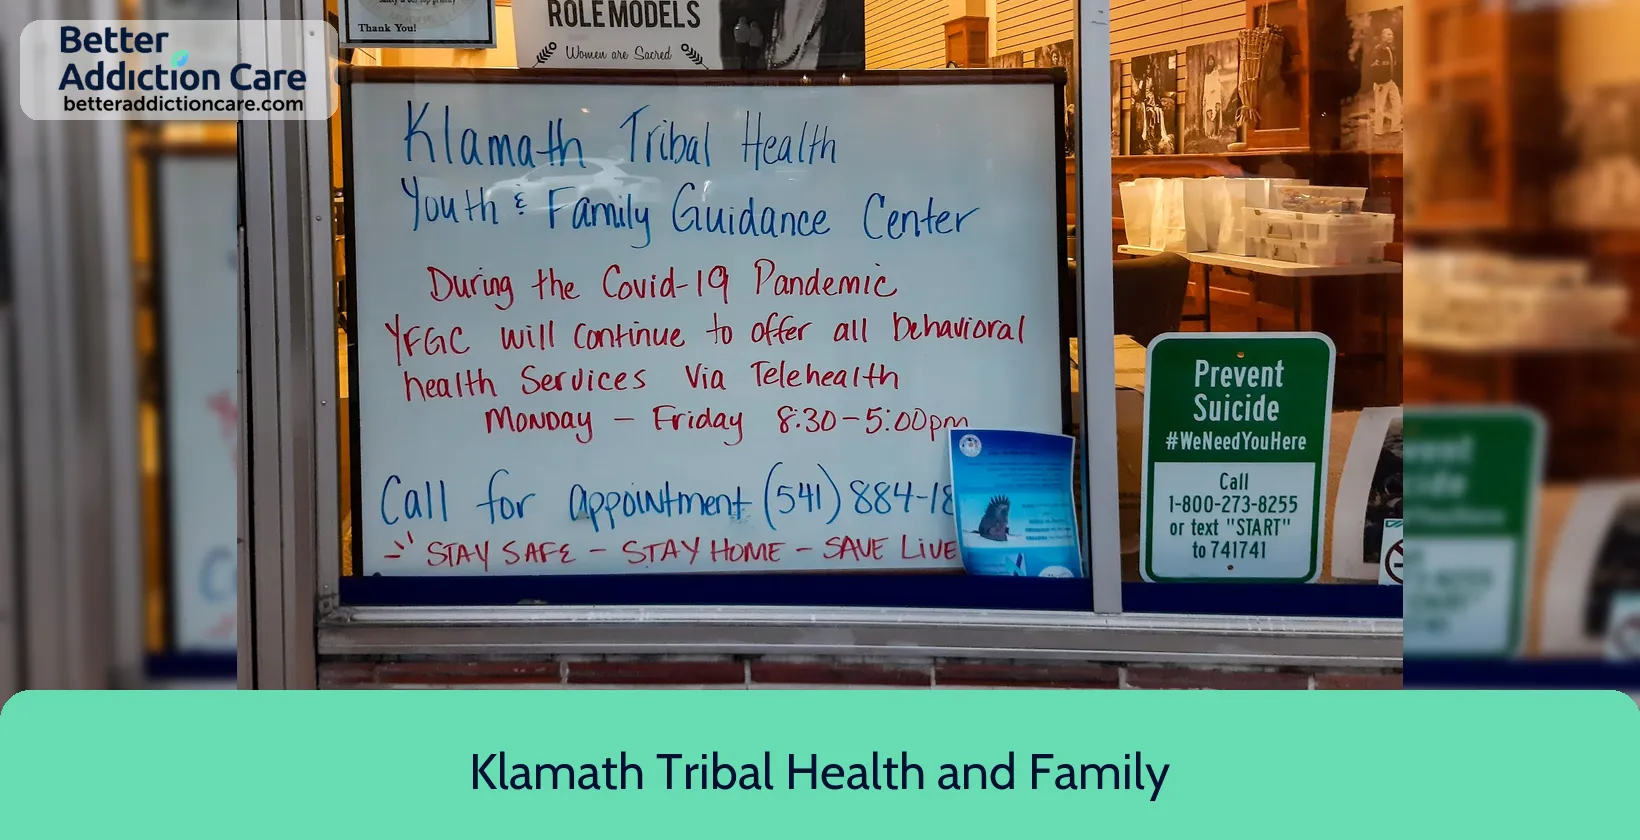 Better
Addiction Care
betteraddictioncare.com
Thank You!
ROLE MODELS
Women are Sacred
Klamath Tribal Health
Youth & Family Guidance Center
During the Covid-19 Pandemic
YFGC will continue to offer all behavioral
health Services Via Telehealth
Monday – Friday 8:30–5:00pm
Call for appointment (541) 884-18
STAY SAFE – STAY HOME – SAVE LIVE
Prevent
Suicide
#WeNeedYouHere
Call
1-800-273-8255
or text "START"
to 741741
Klamath Tribal Health and Family